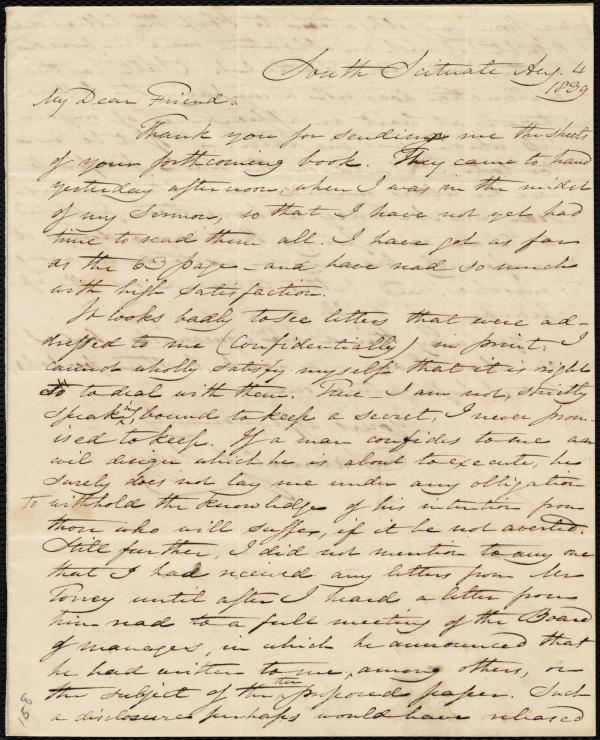 South Scituate Aug. 4
1839
My Dear Friend.
Thank you for sending me the sheets
of your forthcoming book. They came to hand
yesterday afternoon, when I was in the midst
of my Sermon, so that I have not yet had
time to read them all. I have got as far
as the 63 page – and have read so much
with high satisfaction.
It looks badly to see letters that were ad-
dressed to me (Confidentially) in print. I
cannot wholly satisfy myself that it is right
so to deal with them. True – I am not, strictly
speaking, bound to keep a secret, I never prom-
ised to keep. If a man confides to me an
evil design which he is about to execute, he
surely does not lay me under any obligation
to withhold the knowledge of his intention from
those who will suffer, if it be not averted.
Still further, I did not mention to any one
that I had received any letters from Mr
Torrey until after I heard a letter from
him read to a full meeting of the Board
of managers, in which he announced that
he had written to me, among others, on
the subject of the new proposed paper. Such
a disclosure perhaps would have released
158